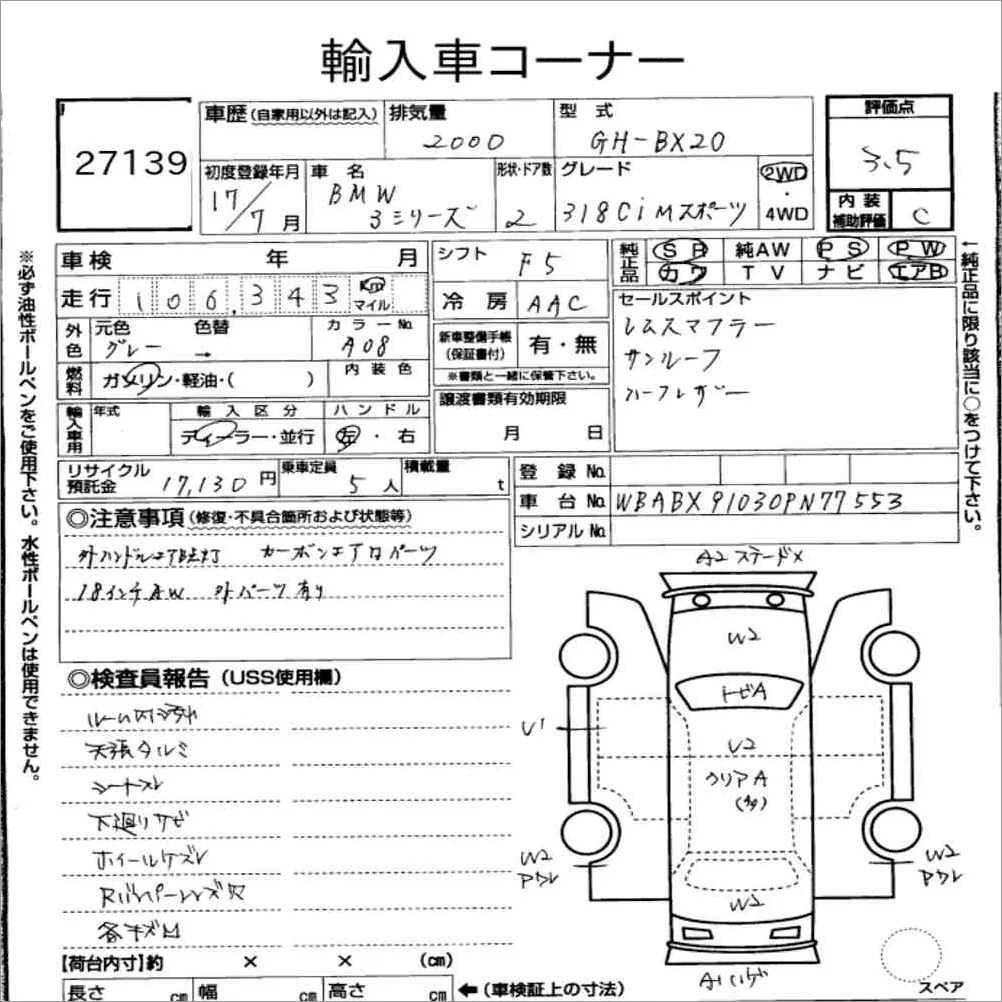 輸入車コーナー
27139
車歴(自家用以外は記入)
排気量
2000
型式
GH-BX20
評価点
3.5
初度登録年月
17/7月
車名
BMW
3シリーズ
形状・ドア数
2
グレード
318CiMスポーツ
2WD
・
4WD
内装
補助評価
C
※必ず油性ボールペンをご使用下さい。水性ボールペンは使用できません。
車検 年 月
走行 106,343 Km マイル
外色
元色 色替
グレー →
カラーNo.
A08
燃料
ガソリン・軽油・( )
内装色
輸入車用
年式
輸入区分
ディーラー・並行
ハンドル
左・右
リサイクル
預託金
17,130円
乗車定員
5人
積載量
t
シフト
F5
冷房
AAC
新車整備手帳
(保証書付)
有・無
※書類と一緒に保管下さい。
譲渡書類有効期限
月 日
純正品
SR 純AW PS PW
カワ TV ナビ エアB
セールスポイント
レムスマフラー
サンルーフ
ハーフレザー
←純正品に限り該当に○をつけて下さい。
登録No.
車台No. WBABX91030PN77553
シリアルNo.
◎注意事項(修復・不具合箇所および状態等)
外ハンドルエアB点灯 カーボンエアロパーツ
18インチAW 外パーツ有り
◎検査員報告(USS使用欄)
天張タルミ
シートスレ
下廻りサビ
ホイールケズレ
各キズ凹
A2
W2
トビA
U1
U2
クリアA
W2
W2
W2
【荷台内寸】約 × × (cm)
長さ cm 幅 cm 高さ cm
←(車検証上の寸法)
スペア